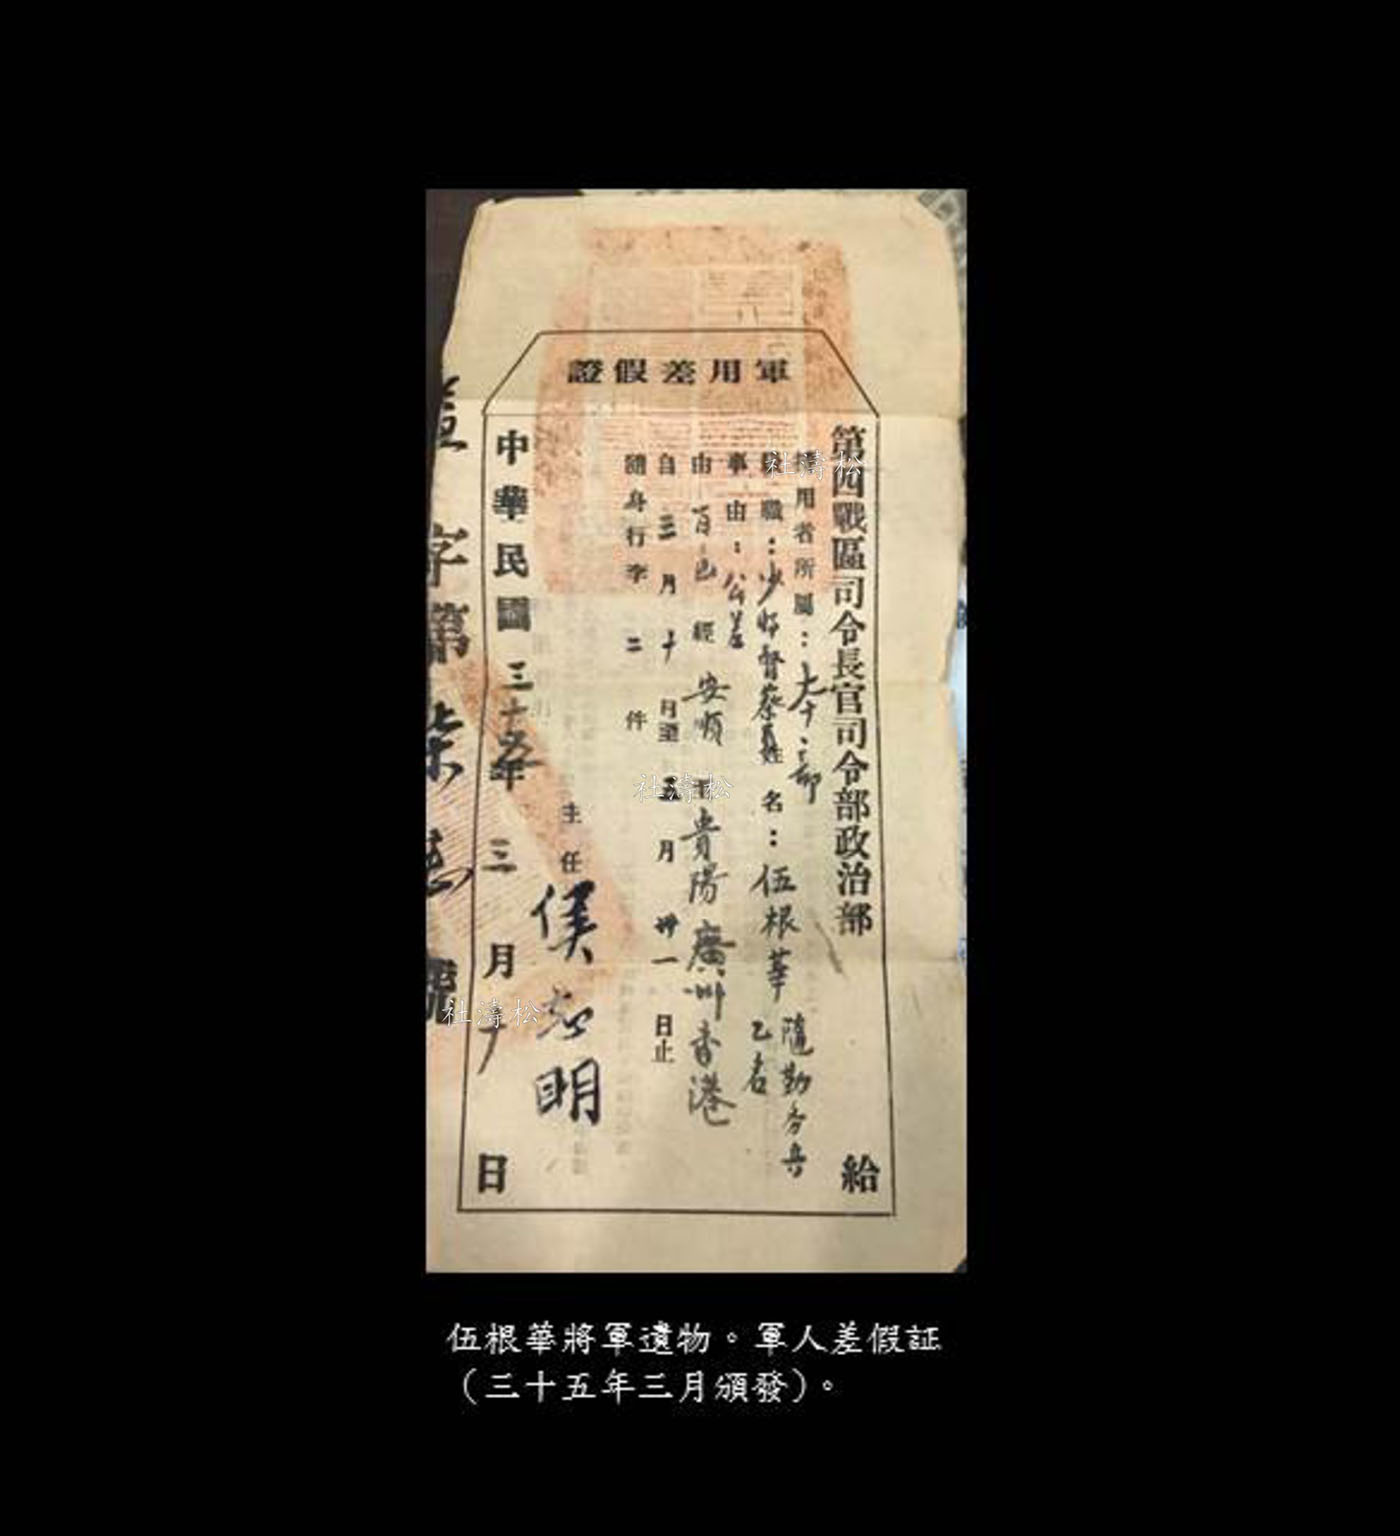 軍用差假證
第四戰區司令長官司令部政治部 給
用省所屬：
職：少將督察員 姓名：伍根華 隨勤務兵乙名
事由：公差
由 百色 經 安順 貴陽廣州香港
自 三月十日至 五月卅一日止
隨身行李 二 件
主任 侯志明
中華民國 三十五年 三月 十 日
字第 柒 號
松濤社
松濤社
松濤社
伍根華將軍遺物。軍人差假証
（三十五年三月頒發）。